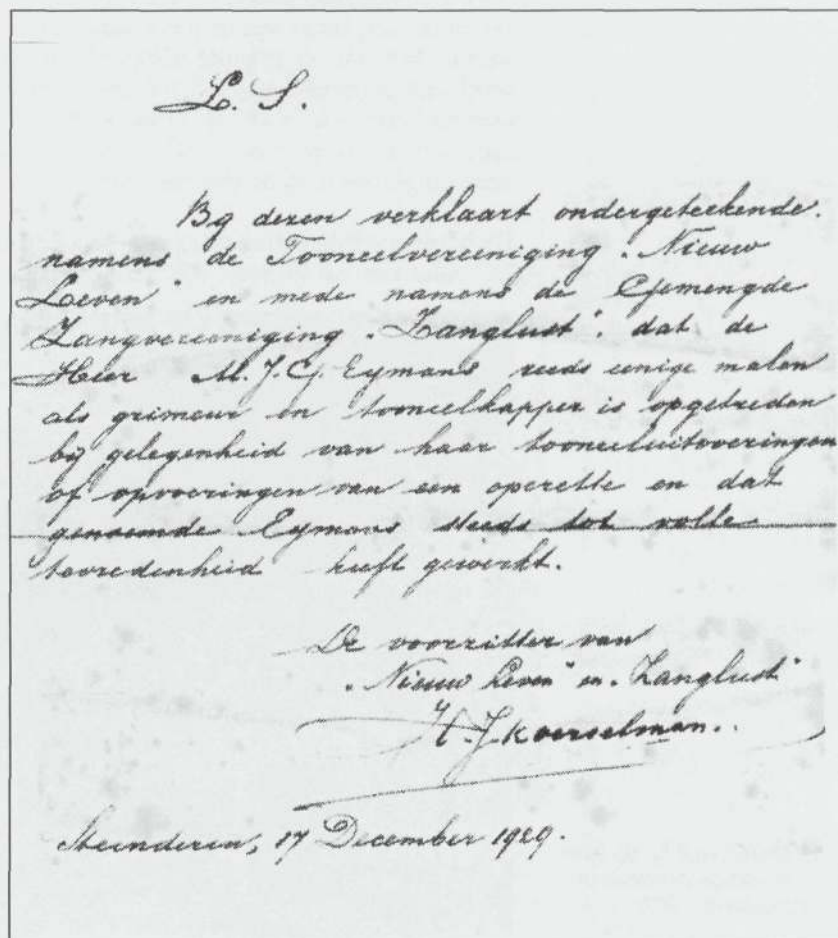 L. S.
Bij dezen verklaart ondergeteekende.
namens de Tooneelvereeniging „Nieuw
Leven" en mede namens de Gemengde
Zangvereeniging „Zanglust". dat de
Heer M. J. G. Eymans reeds eenige malen
als grimeur en tooneelkapper is opgetreden
bij gelegenheid van haar tooneeluitvoeringen
of opvoeringen van een operette en dat
genoemde Eymans steeds tot volle
tevredenheid heeft gewerkt.
De voorzitter van
„Nieuw Leven" en „Zanglust"
H. J. Koerselman.
Steenderen, 17 December 1929.